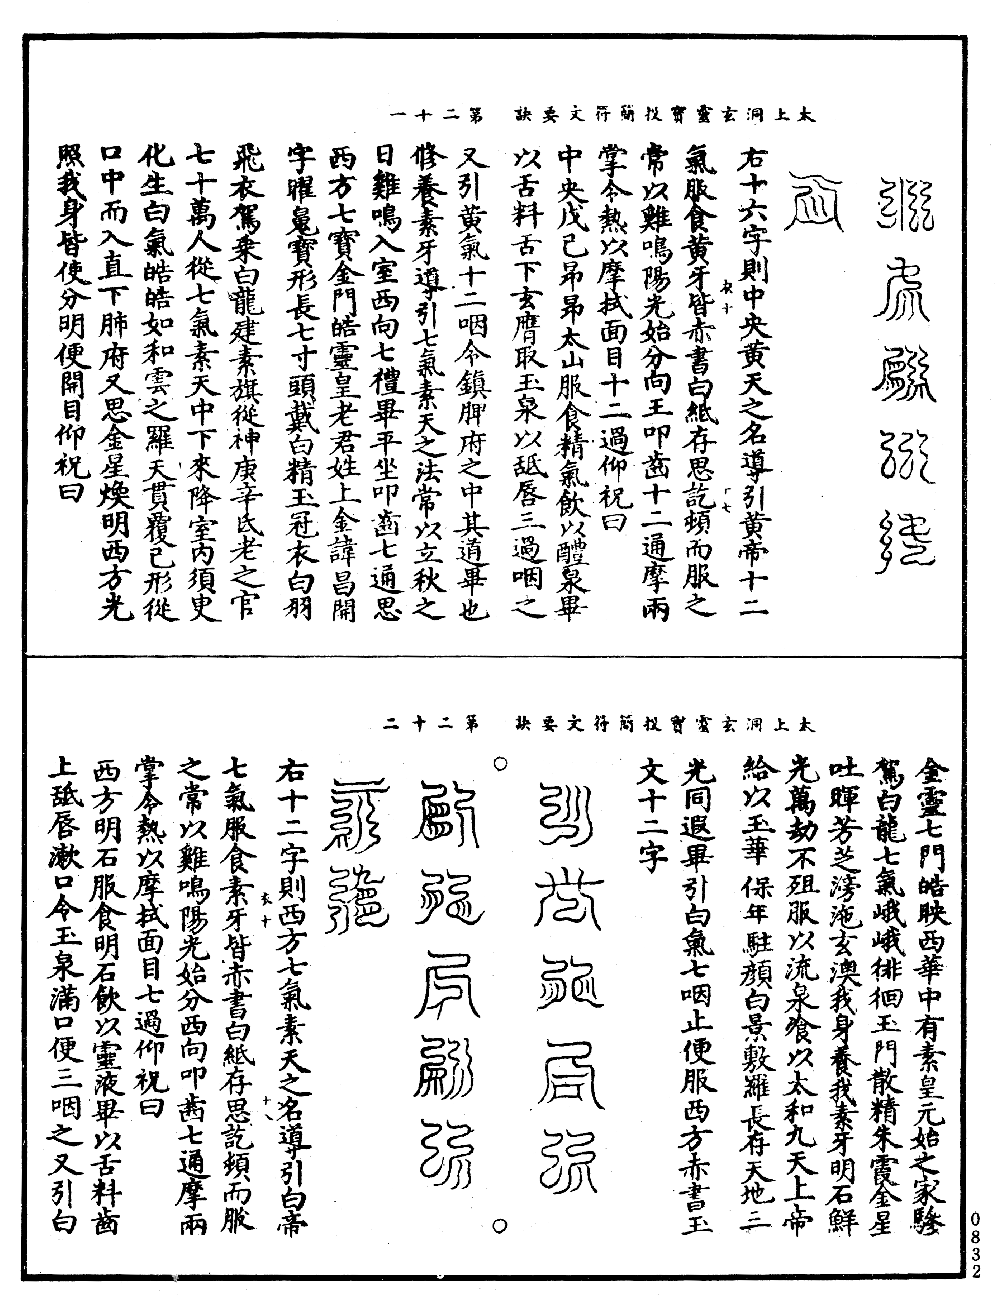 太上洞玄靈寶投簡符文要訣　第二十一
右十六字則中央黃天之名導引黃帝十二
氣服食黃牙皆赤書白紙存思訖頻而服之
常以雞鳴陽光始分向王叩齒十二通摩兩
掌令熱以摩拭面目十二過仰祝曰
中央戊己昂昂太山服食精氣飲以醴泉畢
以舌料舌下玄膺取玉泉以舐唇三過咽之
又引黃氣十二咽令鎮脾府之中其道畢也
修養素牙導引七氣素天之法常以立秋之
日雞鳴入室西向七禮畢平坐叩齒七通思
西方七寶金門皓靈皇老君姓上金諱昌開
字曜魄寶形長七寸頭戴白精玉冠衣白羽
飛衣駕乘白龍建素旗從神庚辛氐老之官
七十萬人從七氣素天中下來降室內須臾
化生白氣皓皓如和雲之羅天貫覆己形從
口中而入直下肺府又思金星煥明西方光
照我身皆使分明便開目仰祝曰
太上洞玄靈寶投簡符文要訣　第二十二
金靈七門皓映西華中有素皇元始之家驂
駕白龍七氣峨峨徘徊玉門散精朱霞金星
吐暉芳芝滂沲玄澳我身養我素牙明石鮮
光萬劫不殂服以流泉飡以太和九天上帝
給以玉華保年駐顏白景敷羅長存天地三
光同遐畢引白氣七咽止便服西方赤書玉
文十二字
右十二字則西方七氣素天之名導引白帝
七氣服食素牙皆赤書白紙存思訖頻而服
之常以雞鳴陽光始分西向叩齒七通摩兩
掌令熱以摩拭面目七過仰祝曰
西方明石服食明石飲以靈液畢以舌料齒
上舐唇漱口令玉泉滿口便三咽之又引白
0832